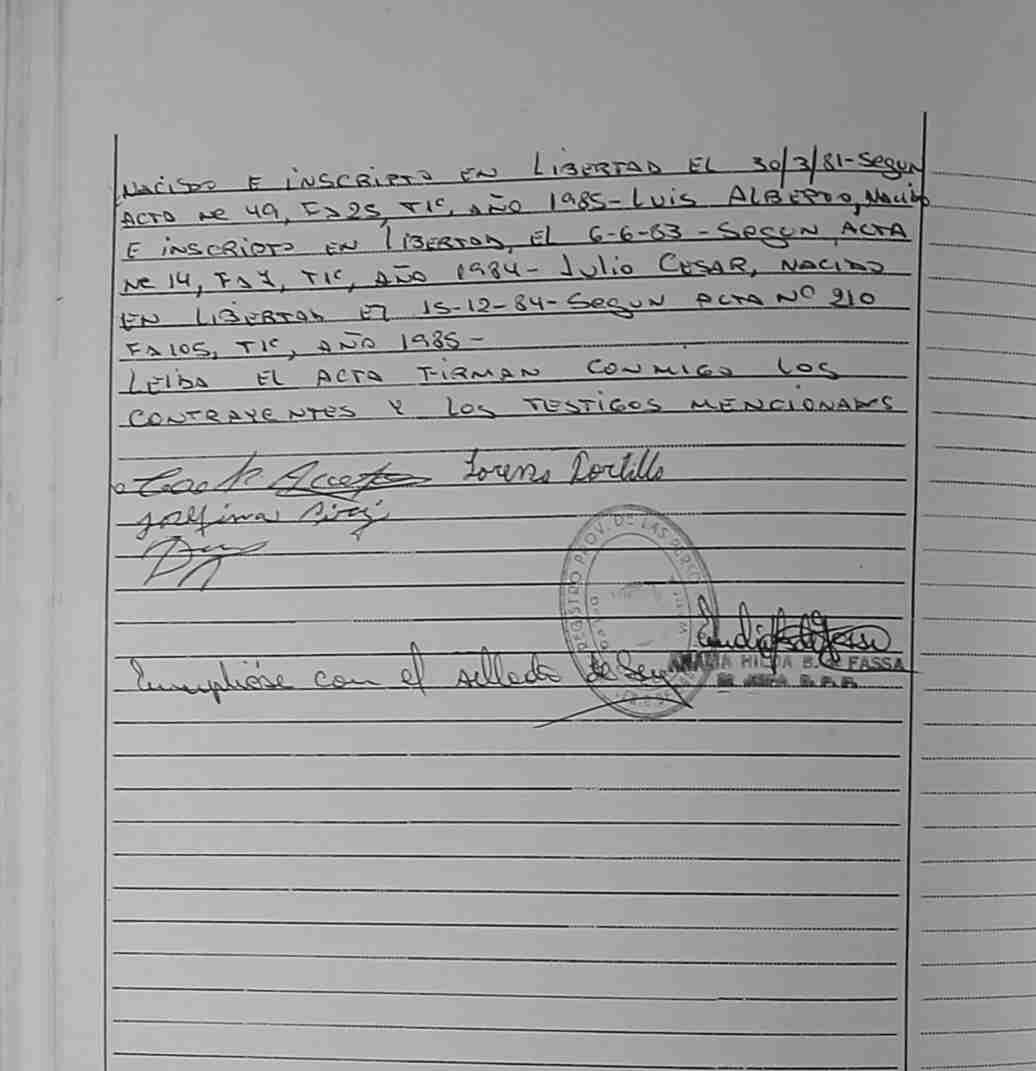 NACIDO E INSCRIPTO EN LIBERTAD EL 30/3/81-Segun
ACTA Nº 49, Fº 25, TIº, AÑO 1985-LUIS ALBERTO, NACIDO
E INSCRIPTO EN LIBERTAD, EL 6-6-83-Segun ACTA
Nº 14, Fº 7, TIº, AÑO 1984- JULIO CESAR, NACIDO
EN LIBERTAD EL 15-12-84-Segun ACTA Nº 210
Fº 105, TIº, AÑO 1985-
LEIDA EL ACTA FIRMAN CONMIGO LOS
CONTRAYENTES Y LOS TESTIGOS MENCIONADOS
Lorenzo Portillo
Josefina
REGISTRO PROV. DE LAS PERSO
Cumplióse con el sellado de Ley
ANALIA HILDA B. de FASSA